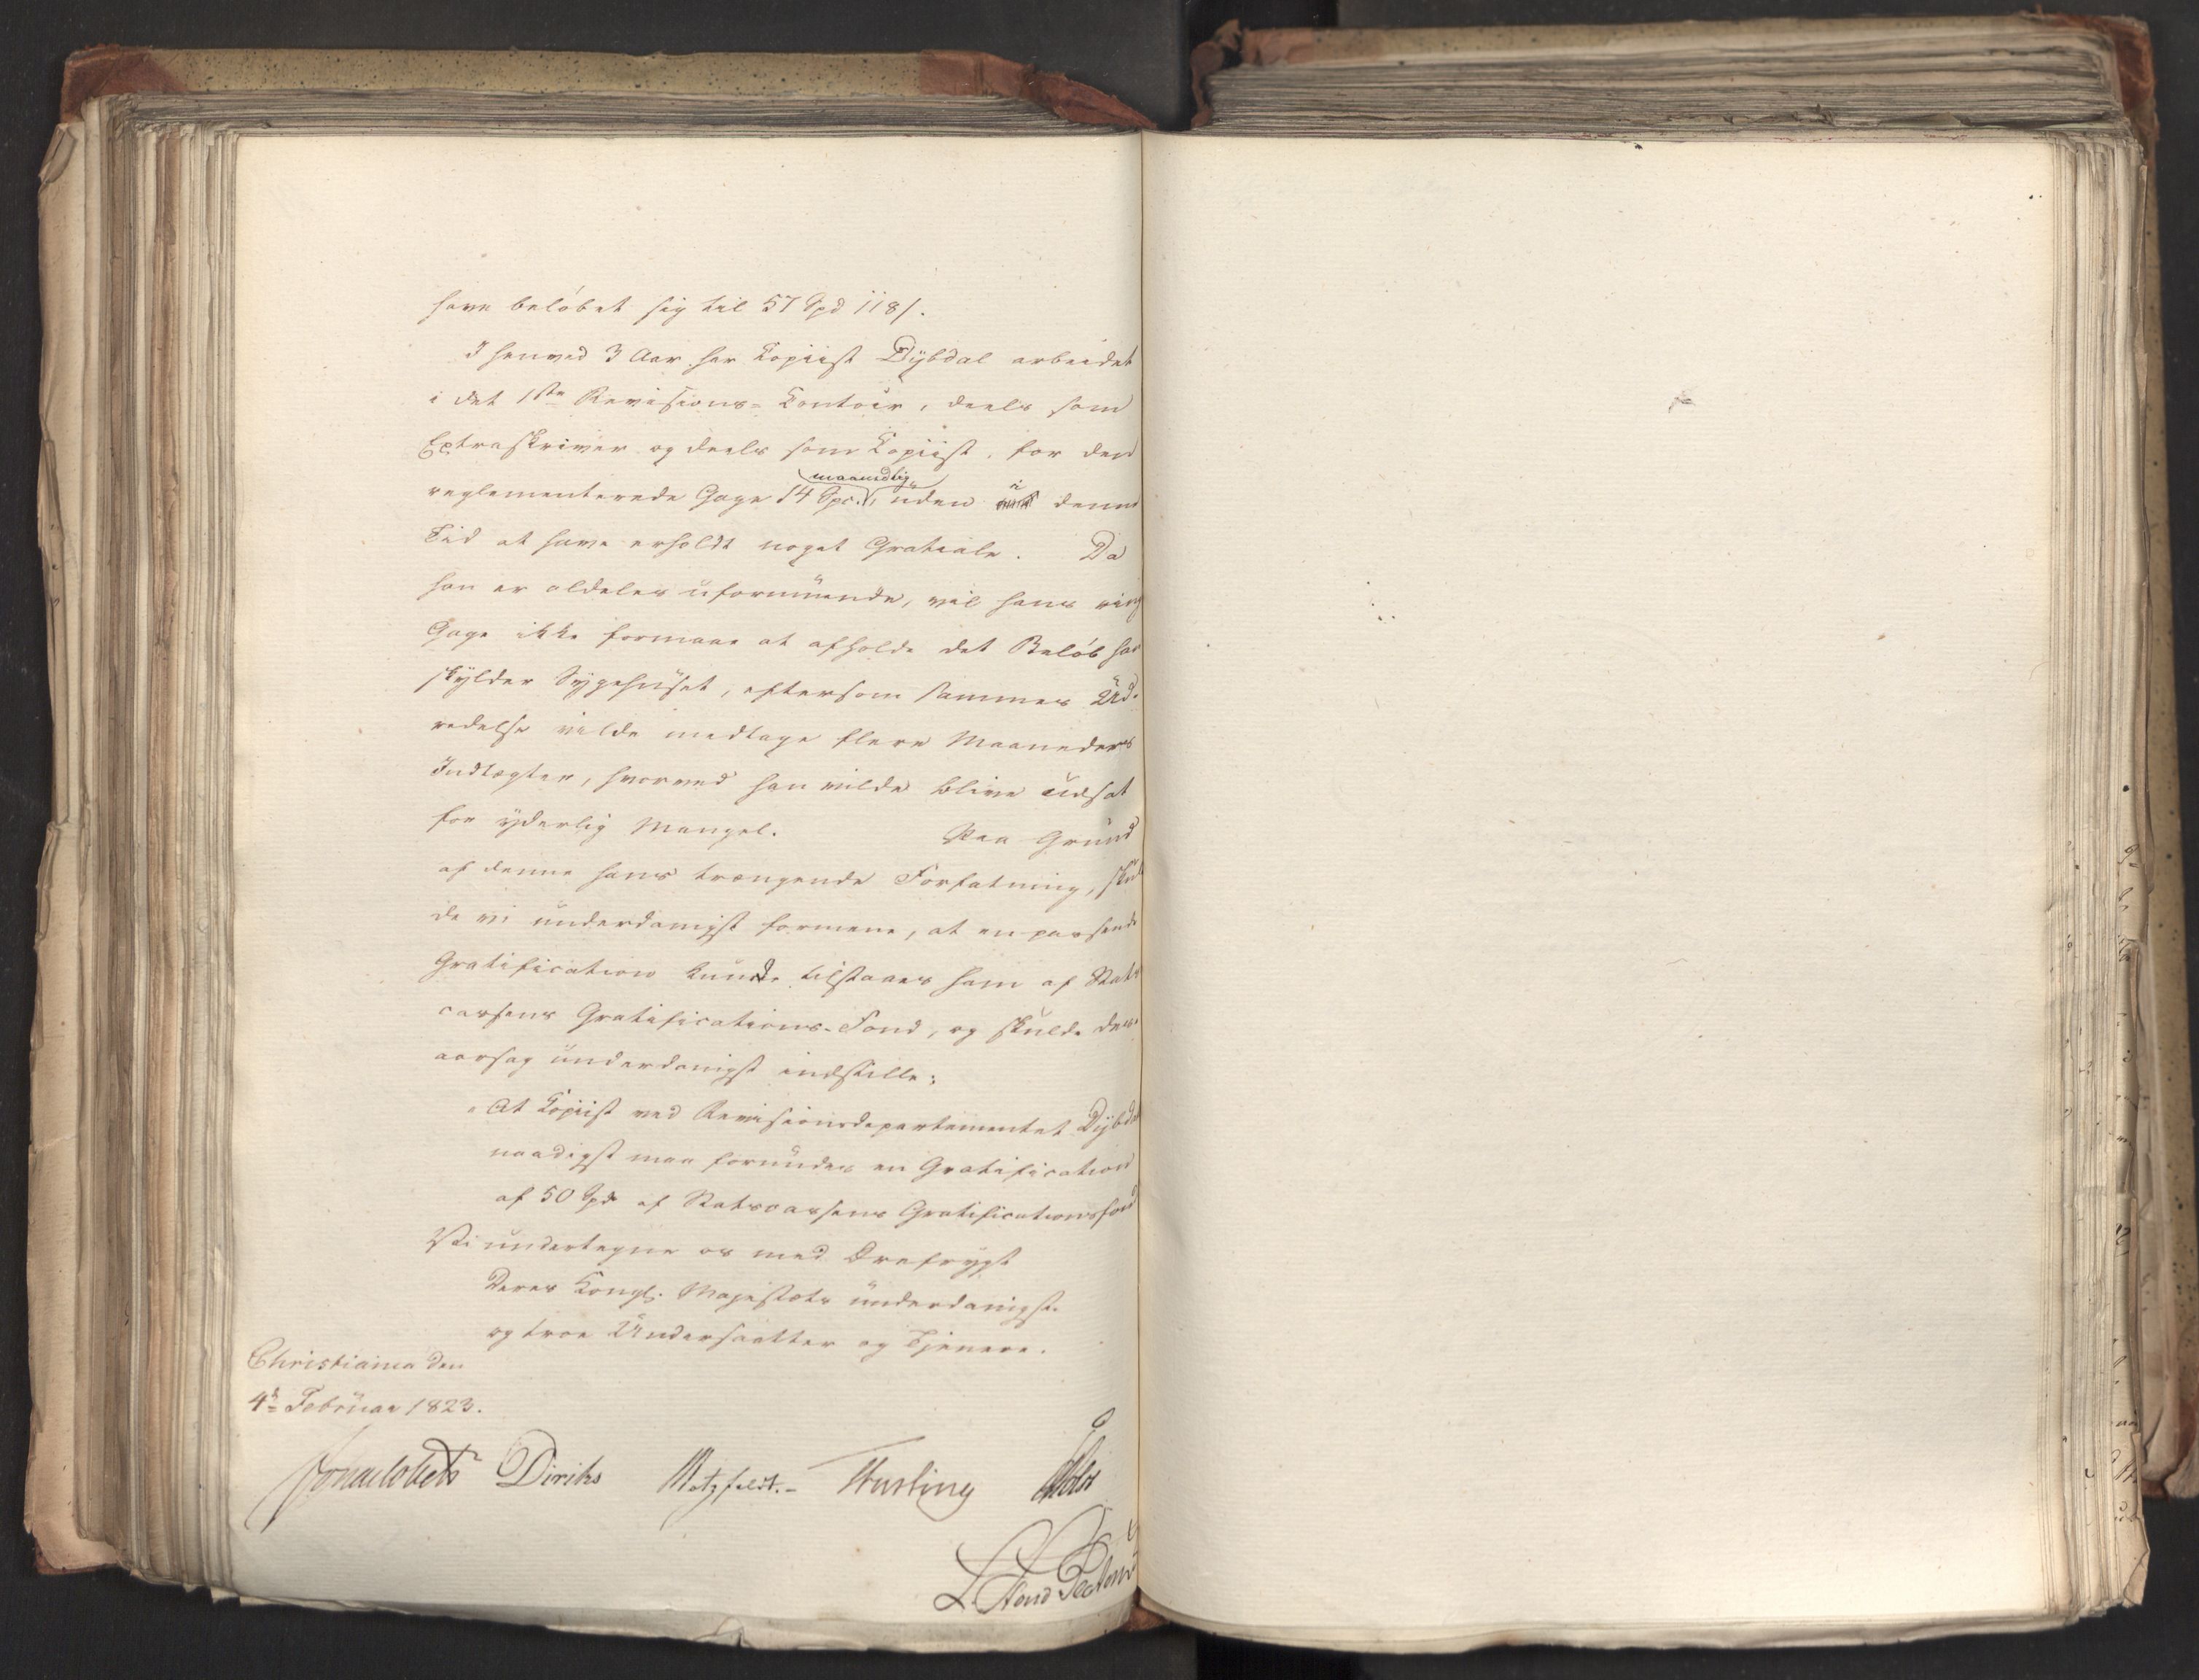 have beløbet sig til 57 Spd 118 s.
I henved 3 Aar har Kopiist Dybdal arbeidet
i det 1ste Revisions-Kontoir, deels som
Extraskriver og deels som Kopiist, for den
reglementerede Gage 14 Spd. maanedlig, uden i denne
Tid at have erholdt noget Gratiale. Da
han er aldeles uformuende, vil hans ring
Gage ikke formaae at afholde det Beløb han
skylder Sygehuset, eftersom sammes Ud-
redelse vilde medtage flere Maaneders
Indtægter, hvorved han vilde blive udsat
for yderlig Mangel. Paa Grund
af denne hans trængende Forfatning, skul
de vi underdanigst formene, at en passende
Gratification kunde tilstaaes ham af Stats
cassens Gratifications-Fond, og skulde des-
aarsag underdanigst indstille:
"At Kopiist ved Revisionsdepartementet Dybdal
naadigst maa forundes en Gratification
af 50 Spd af Statscassens Gratificationsfond
Vi undertegne os med Ærefrygt
Deres Kongl. Majestæts underdanigste
og troe Undersaatter og Tjenere.
Christiania den
4de Februar 1823.
Jonas Collett Diriks Motzfeldt.- Fasting Holst